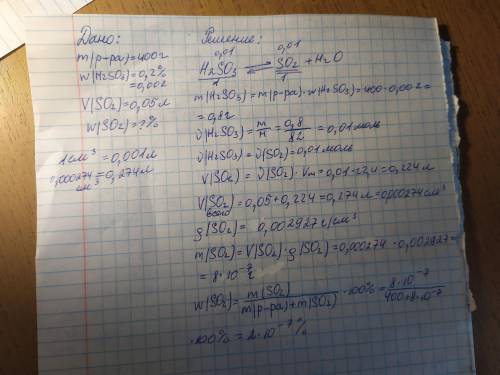 Дано:
m(р-ра)=400г
w(H2SO3)=0,2%
=0,002
V(SO2)=0,05л
w(SO2)=?%
1см³=0,001л
0,000274см³=0,274л
Решение:
0,01 0,01
H2SO3 ⇌ SO2 + H2O
1 1
m(H2SO3)=m(р-ра)·w(H2SO3)=400·0,002=
=0,8г
ν(H2SO3)=m/M=0,8/82=0,01моль
ν(H2SO3)=ν(SO2)=0,01моль
V(SO2)=ν(SO2)·Vm=0,01·22,4=0,224л
V(SO2)всего=0,05+0,224=0,274л=0,000274см³
ρ(SO2)=0,002927г/см³
m(SO2)=V(SO2)·ρ(SO2)=0,000274·0,002927=
=8·10⁻⁷г
w(SO2)=m(SO2)/m(р-ра)+m(SO2)·100%=8·10⁻⁷/400+8·10⁻⁷
·100%=2·10⁻⁷%